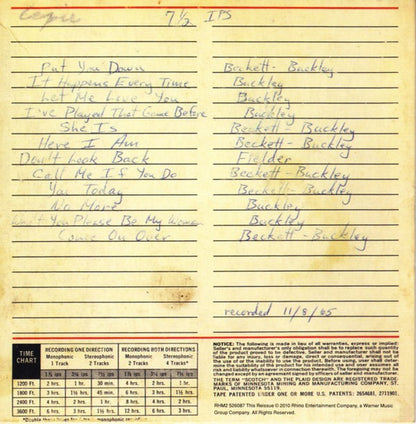 7½ IPS
Put You Down Beckett - Buckley
It Happens Every Time Buckley
Let Me Love You Buckley
I've Played That Game Before Buckley
She Is Beckett - Buckley
Here I Am Beckett - Buckley
Don't Look Back Fielder
Call Me If You Do Beckett - Buckley
You Today Beckett - Buckley
No More Buckley
Won't You Please Be My Woman Buckley
Come On Over Beckett - Buckley
recorded 11/8/65
TIME CHART
RECORDING ONE DIRECTION RECORDING BOTH DIRECTIONS
Monophonic 1 Track Stereophonic 2 Tracks Monophonic 2 Tracks Stereophonic 4 Tracks*
3¾ ips 7½ ips 3¾ ips 7½ ips
1200 Ft. 2 hrs. 1 hr. 30 min. 4 hrs. 2 hrs. 1 hr.
1800 Ft. 3 hrs. 1½ hrs. 45 min. 6 hrs. 3 hrs. 1½ hrs.
2400 Ft. 4 hrs. 2 hrs. 1 hr. 8 hrs. 4 hrs. 2 hrs.
3600 Ft. 6 hrs. 3 hrs. 12 hrs. 6 hrs. 3 hrs.
NOTICE: The following is made in lieu of all warranties, express or implied:
Seller's and manufacturer's only obligation shall be to replace such quantity
of the product proved to be defective. Seller and manufacturer shall not be
liable for any injury, loss or damage, direct or consequential, arising out of
the use of or the inability to use the product. Before using, user shall determine
the suitability of the product for his intended use, and user assumes all
risk and liability whatsoever in connection therewith. The foregoing may not be
changed except by an agreement signed by officers of seller and manufacturer.
THE TERM "SCOTCH" AND THE PLAID DESIGN ARE REGISTERED TRADE
MARKS OF MINNESOTA MINING AND MANUFACTURING COMPANY, ST.
PAUL, MINNESOTA 55119.
TAPE PATENTED UNDER ONE OR MORE U.S. PATENTS: 2654681, 2711901.
RHM2 526087 This Reissue ℗ 2010 Rhino Entertainment Company, a Warner Music
Group Company. All Rights Reserved.